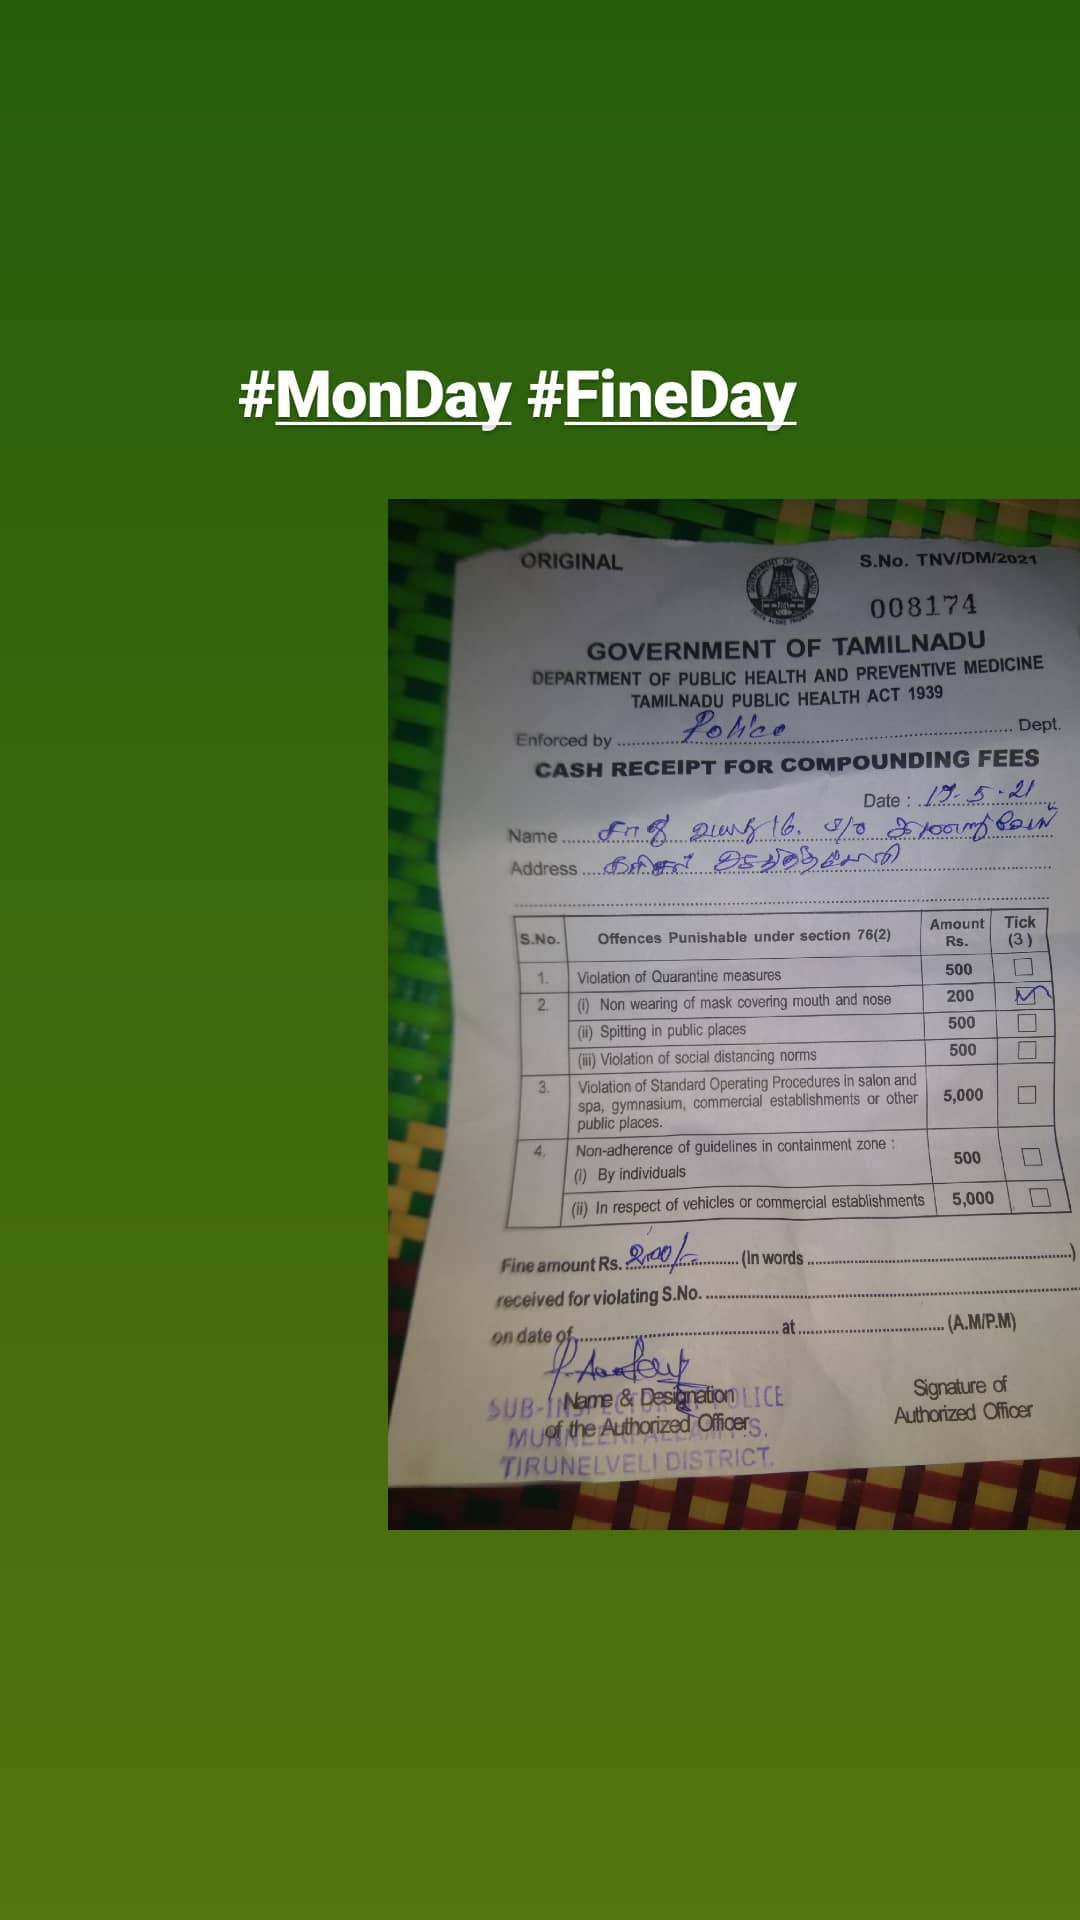 #MonDay #FineDay
ORIGINAL
S.No. TNV/DM/2021
008174
GOVERNMENT OF TAMILNADU
DEPARTMENT OF PUBLIC HEALTH AND PREVENTIVE MEDICINE
TAMILNADU PUBLIC HEALTH ACT 1939
Enforced by Police Dept.
CASH RECEIPT FOR COMPOUNDING FEES
Date : 17-5-21
Name வயது 16. S/o
Address
S.No. Offences Punishable under section 76(2) Amount Rs. Tick (3)
1. Violation of Quarantine measures 500
2. (i) Non wearing of mask covering mouth and nose 200
(ii) Spitting in public places 500
(iii) Violation of social distancing norms 500
3. Violation of Standard Operating Procedures in salon and
spa, gymnasium, commercial establishments or other 5,000
public places.
4. Non-adherence of guidelines in containment zone :
(i) By individuals 500
(ii) In respect of vehicles or commercial establishments 5,000
Fine amount Rs. 200/- (In words )
received for violating S.No.
on date of at (A.M/P.M)
Name & Designation
of the Authorized Officer
Signature of
Authorized Officer
SUB-INSPECTOR OF POLICE
MUNNEERPALLAM P.S.
TIRUNELVELI DISTRICT.